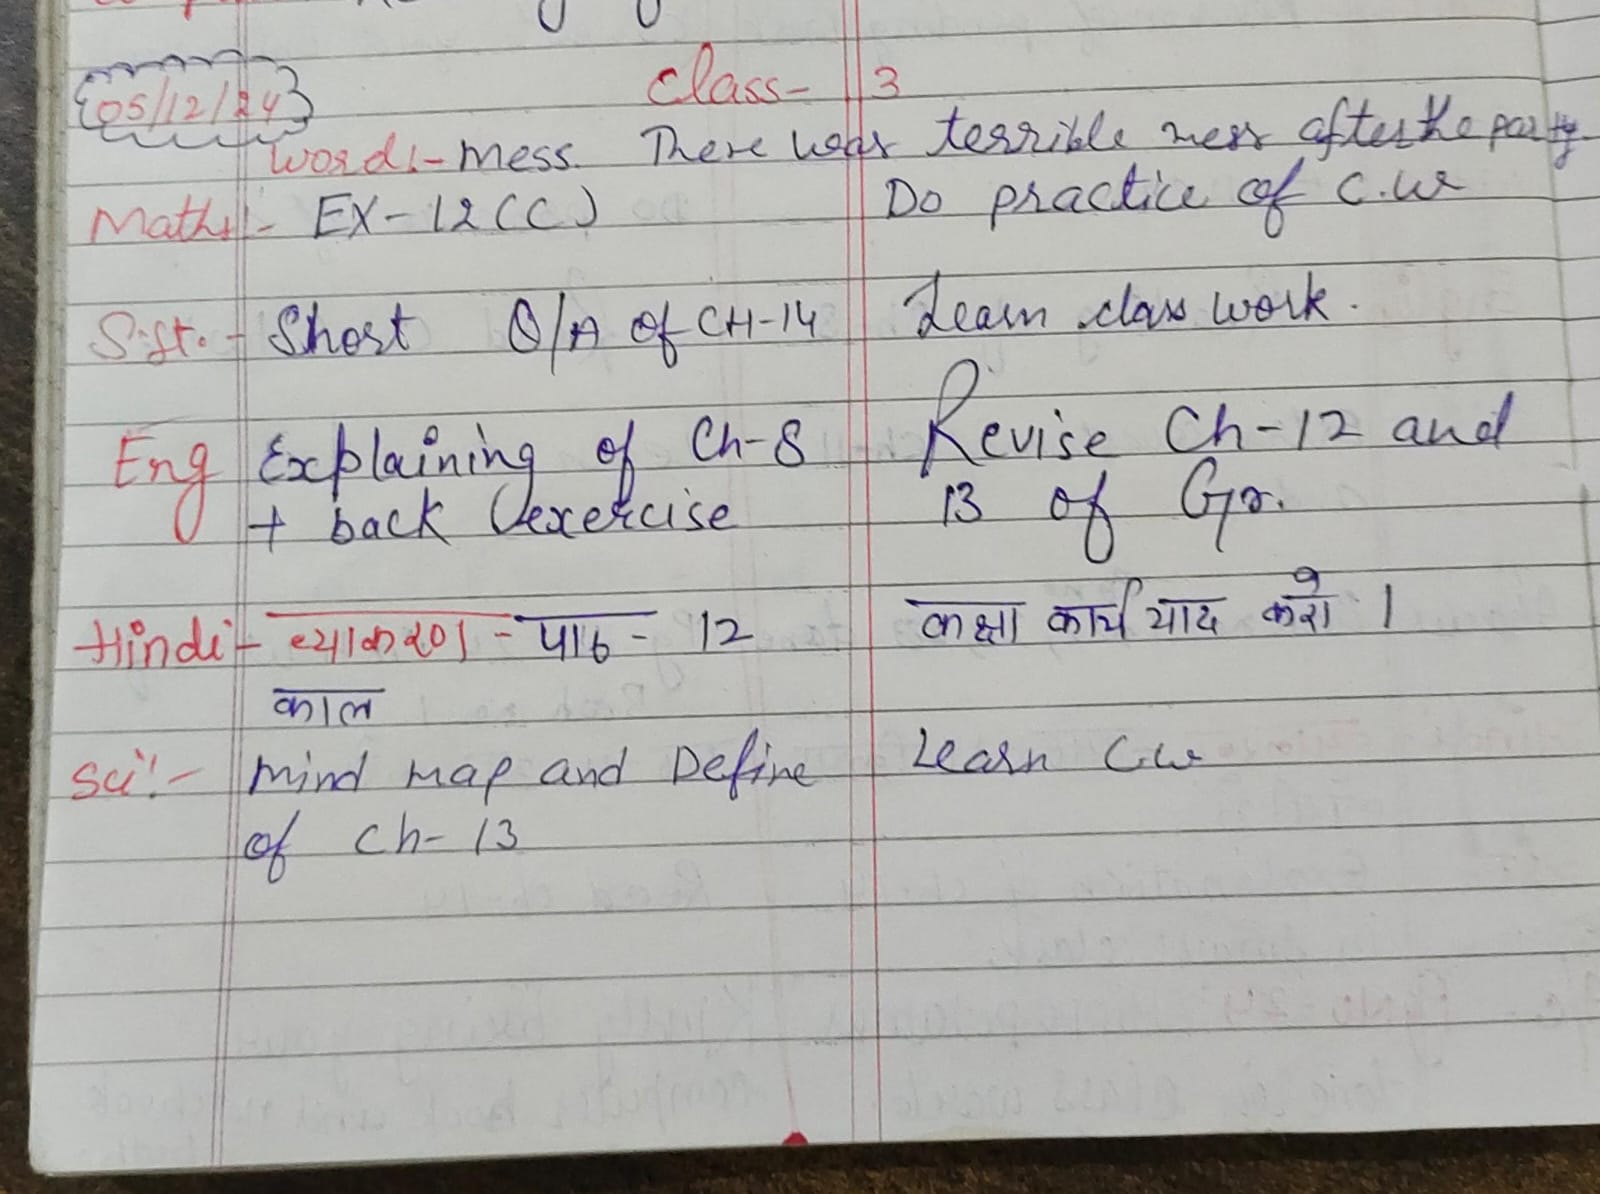 05/12/24
Class- 3
Word:- Mess. There was terrible mess after the party
Maths:- EX-12(C) Do practice of C.W
S.St.- Short Q/A of CH-14 Learn class work.
Eng Explaining of Ch-8 Revise Ch-12 and
+ back exercise 13 of Gr.
Hindi:- व्याकरण - पाठ - 12 कक्षा कार्य याद करो ।
काल
Sci:- Mind Map and Define Learn C.W
of Ch-13